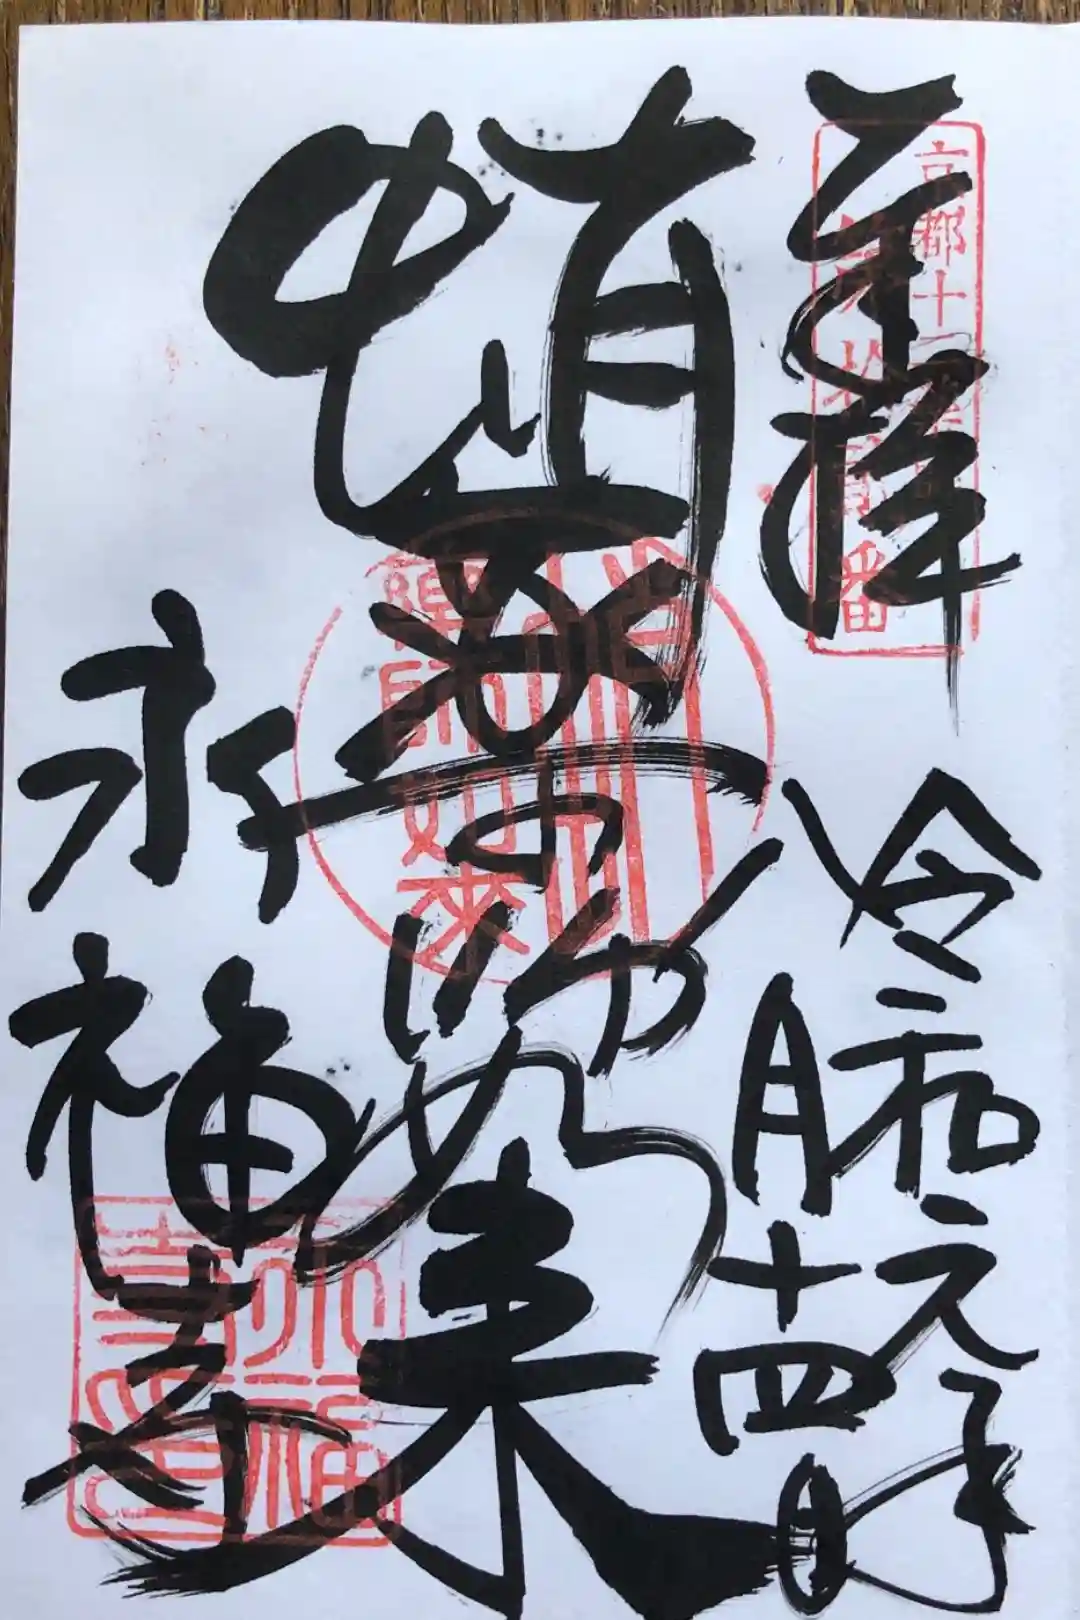 奉拝
京都十二薬師霊場
第拾貳番
令和元年
八月十四日
蛸薬師如来
薬師如来
永福寺
永福寺印